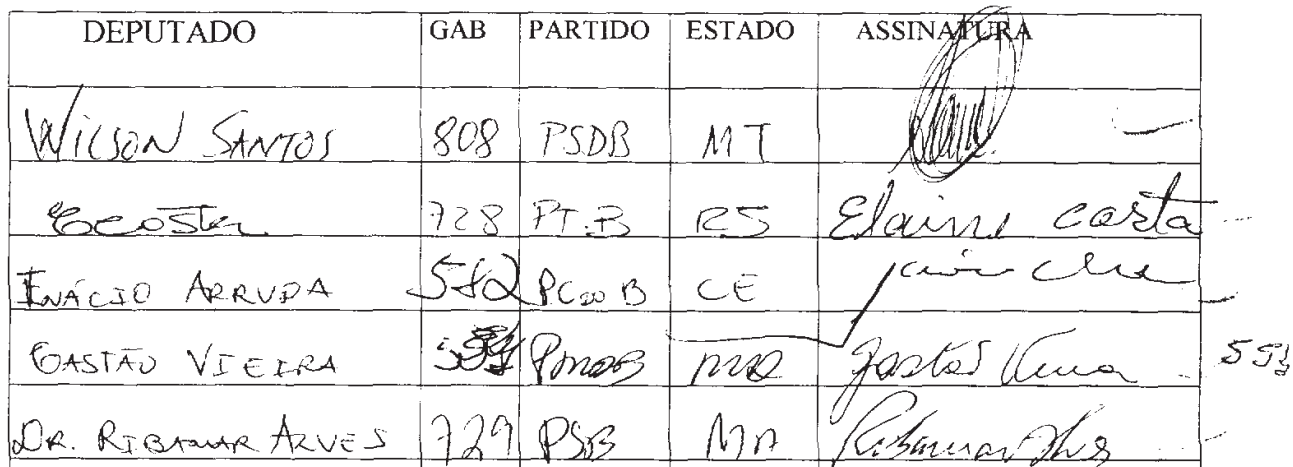 DEPUTADO GAB PARTIDO ESTADO ASSINATURA
WILSON SANTOS 808 PSDB MT
Ecosta 728 PT.B RS Elaine costa
INÁCIO ARRUDA 582 PCdoB CE
GASTÃO VIEIRA PMDB MA Gastão Vieira 554
DR. RIBAMAR ALVES 729 PSB MA Ribamar Alves